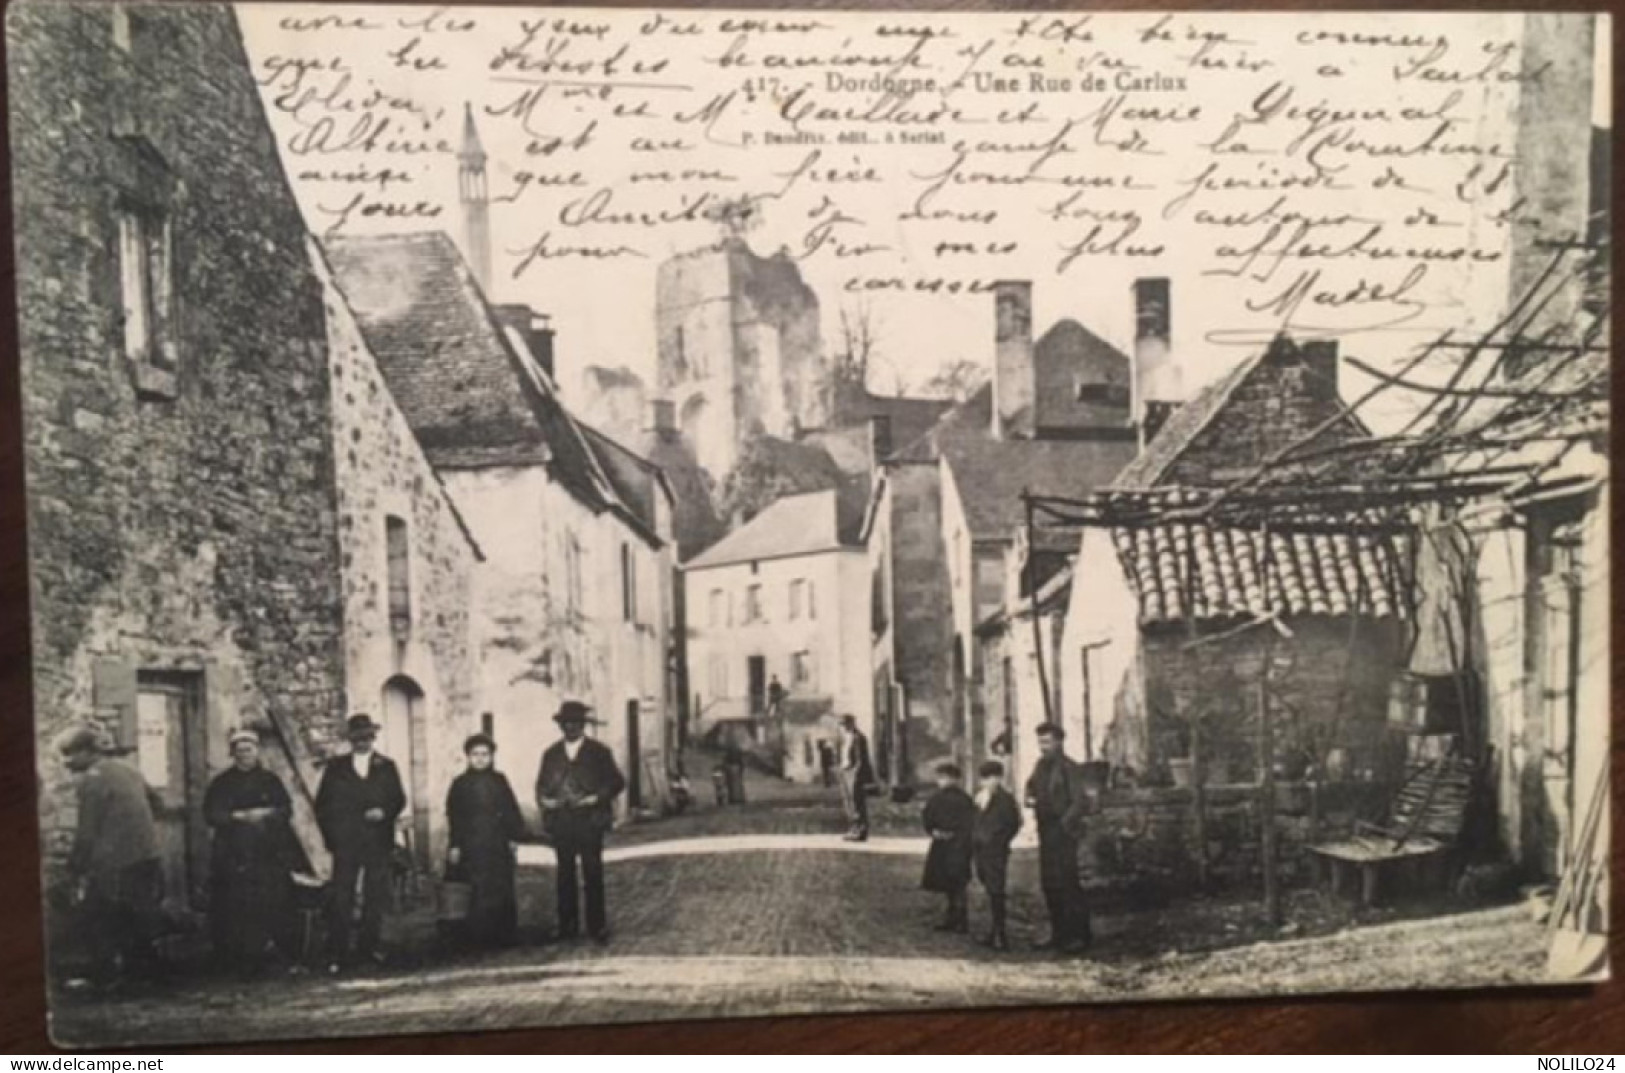 avec les yeux du cœur, une tête bien connue et
que tu détestes beaucoup. J'ai vu hier à Sarlat
417. - Dordogne. - Une Rue de Carlux
Élida, Mme et Mr Taillade et Marie Degunal
P. Daudrix, édit., à Sarlat
Albérie est au camp de la Courtine
ainsi que mon frère pour une période de 28
jours Amitiés de nous tous autour de toi
pour Fer mes plus affectueuses
caresses
Madel
NOLILO24